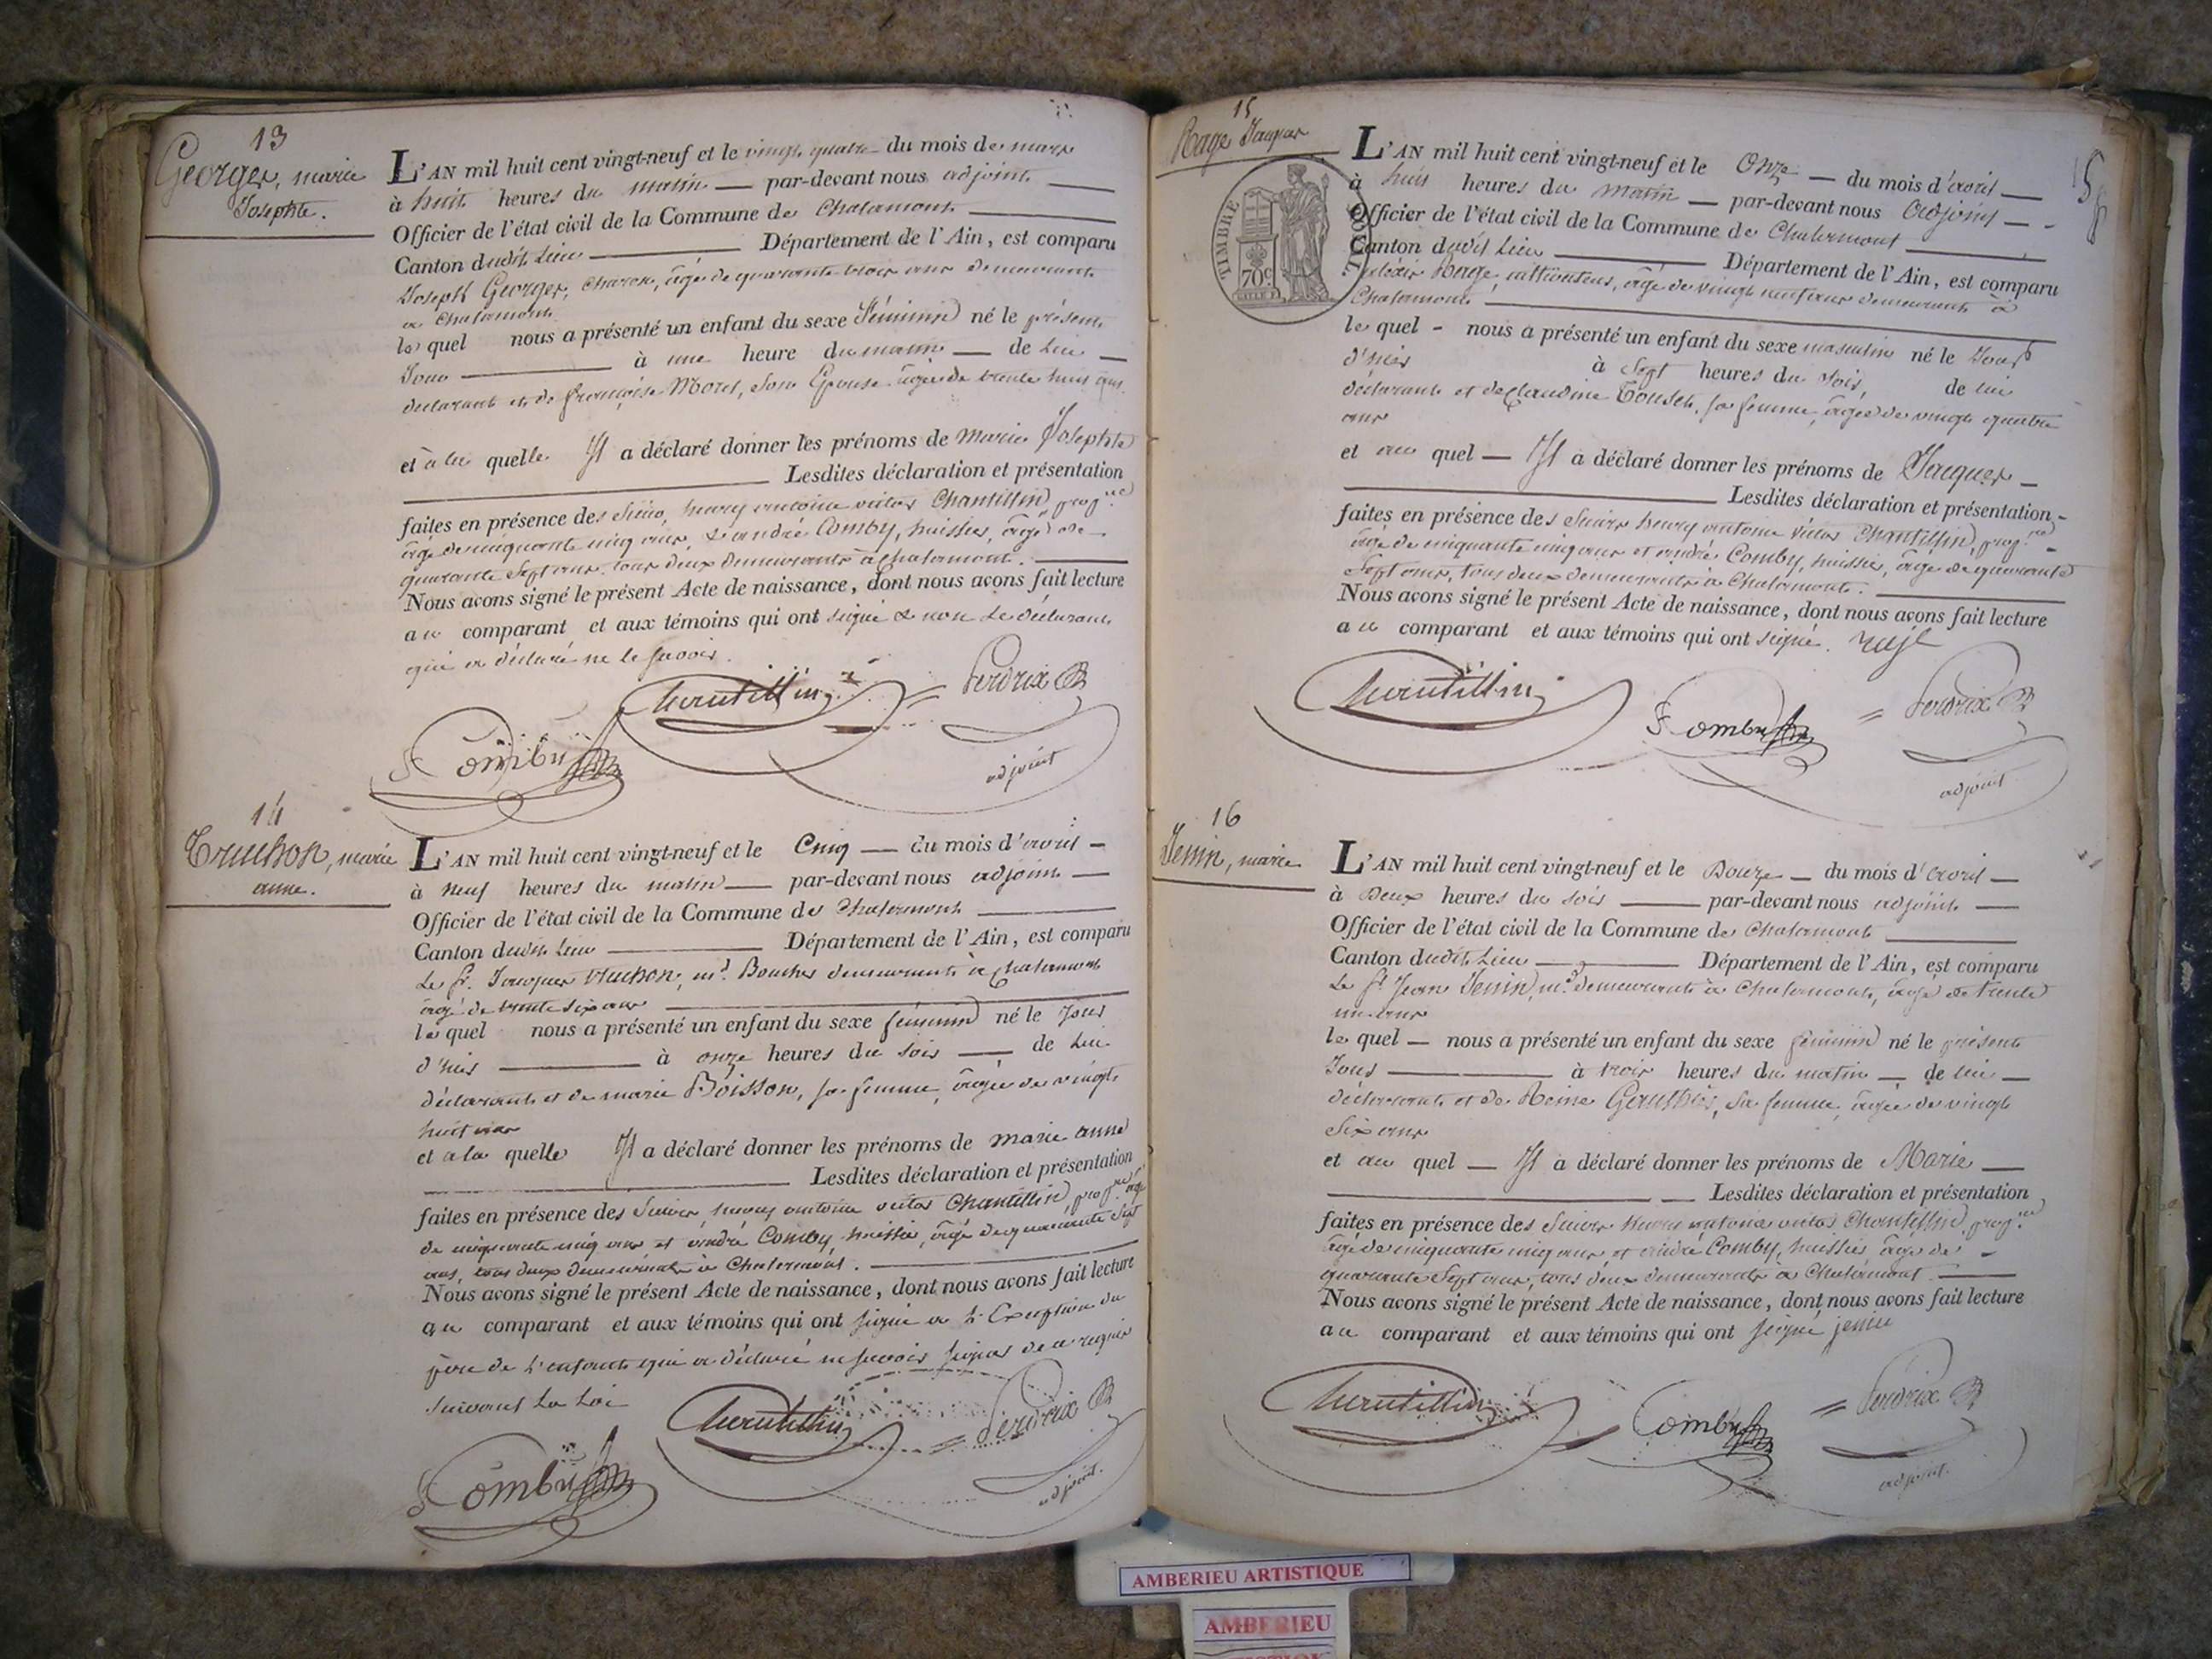 13
Georges, marie
Josephte.
L'AN mil huit cent vingt-neuf et le vingt quatre du mois de mars
à huit heures du matin — par-devant nous adjoint —
Officier de l'état civil de la Commune de Chalamont —
Canton dudit Lieu — Département de l'Ain, est comparu
Joseph Georges, charon, âgé de quarante trois ans demeurant
a Chalamont.
le quel nous a présenté un enfant du sexe féminin né le présent
Jour — à une heure du matin — de lui —
déclarant et de françoise Morel, son Epouse âgée de trente huit ans
et a la quelle Il a déclaré donner les prénoms de marie Josephte
— Lesdites déclaration et présentation
faites en présence des Sieurs, henry antoine victor Chantillin, prop.re
âgé de cinquante cinq ans, & andré Comby, huissier, âgé de
quarante Sept ans. tous deux demeurants à chalamont. —
Nous avons signé le présent Acte de naissance, dont nous avons fait lecture
au comparant et aux témoins qui ont signé & non Le déclarant
qui a déclaré ne le savoir.
Chantillin
Perdrix
Comby
adjoint
14
Truchon, marie
anne.
L'AN mil huit cent vingt-neuf et le Cinq — du mois d'avril —
à neuf heures du matin — par-devant nous adjoint —
Officier de l'état civil de la Commune de Chalamont —
Canton dudit Lieu — Département de l'Ain, est comparu
Le Sr. Jacques truchon, md. Boucher demeurant à chalamont
âgé de trente six ans —
le quel nous a présenté un enfant du sexe féminin né le Jour
d'hier — à onze heures du soir — de Lui
déclarant et de marie Boisson, sa femme, âgée de vingt
huit ans
et a la quelle Il a déclaré donner les prénoms de marie anne
— Lesdites déclaration et présentation
faites en présence des Sieurs, henry antoine victor Chantillin, prop.re âgé
de cinquante cinq ans et andré Comby, huissier, âgé de quarante Sept
ans, tous deux demeurants à Chalamont. —
Nous avons signé le présent Acte de naissance, dont nous avons fait lecture
au comparant et aux témoins qui ont signé a L'Exception du
père de L'enfant qui a déclaré ne savoir signer de ce requis
suivant La Loi
Chantillin
Perdrix
Comby
adjoint.
15
Rage Jacques
15
TIMBRE ROYAL
70c
L'AN mil huit cent vingt-neuf et le Onze — du mois d'avril —
à huit heures du matin — par-devant nous adjoint —
Officier de l'état civil de la Commune de Chalamont —
Canton dudit Lieu — Département de l'Ain, est comparu
Rage, cultivateur, âgé de vingt neuf ans demeurant à
Chalamont —
le quel - nous a présenté un enfant du sexe masculin né le Jour
d'hier à Sept heures du soir, de lui
déclarant et de Claudine sa femme, âgée de vingt quatre
ans
et au quel — Il a déclaré donner les prénoms de Jacques —
— Lesdites déclaration et présentation
faites en présence des Sieurs henry antoine victor Chantillin, prop.re
âgé de cinquante cinq ans et andré Comby, huissier, âgé de quarante
Sept ans, tous deux demeurants à Chalamont. —
Nous avons signé le présent Acte de naissance, dont nous avons fait lecture
au comparant et aux témoins qui ont signé. rage
Chantillin
Comby
Perdrix
adjoint
16
Jenin, marie
L'AN mil huit cent vingt-neuf et le Douze — du mois d'avril —
à Deux heures du soir — par-devant nous adjoint —
Officier de l'état civil de la Commune de Chalamont —
Canton dudit Lieu — Département de l'Ain, est comparu
Le Sr. Jean Jenin, md. demeurant à Chalamont, âgé de trente
un ans
le quel — nous a présenté un enfant du sexe féminin né le présent
Jour — à trois heures du matin — de lui —
déclarant et de Reine Gauthier, sa femme, âgée de vingt
Six ans
et au quel — Il a déclaré donner les prénoms de Marie —
— Lesdites déclaration et présentation
faites en présence des Sieurs henri antoine victor Chantillin, prop.re
âgé de cinquante cinq ans et andré Comby, huissier âgé de
quarante Sept ans, tous deux demeurants à Chalamont —
Nous avons signé le présent Acte de naissance, dont nous avons fait lecture
au comparant et aux témoins qui ont signé jenin
Chantillin
Comby
Perdrix
adjoint.
AMBERIEU ARTISTIQUE
AMBERIEU